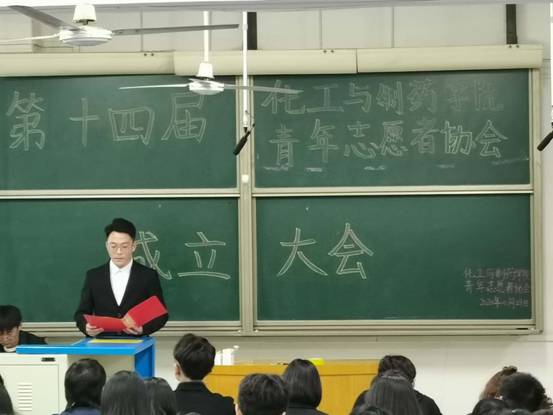 第十四届
化工与制药学院
青年志愿者协会
成立大会
化工与制药学院
青年志愿者协会